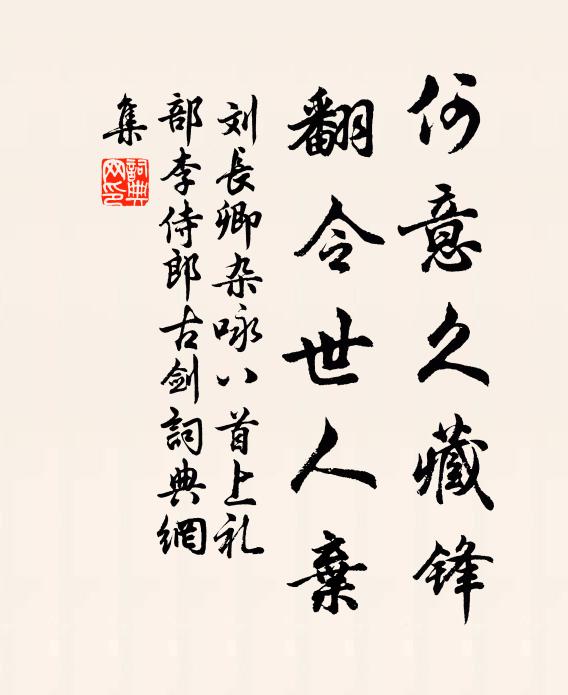 何意久藏锋
翻令世人棄
刘長卿杂咏八首上礼
部李侍郎古剑詞典網
集
詞典網印